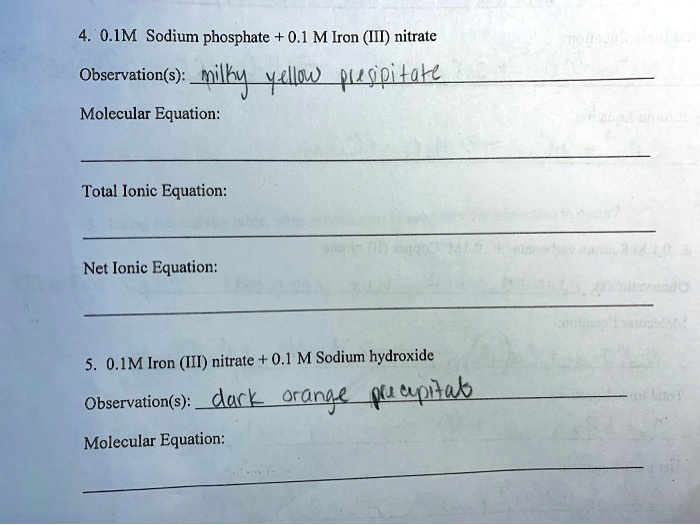 4. 0.1M Sodium phosphate + 0.1 M Iron (III) nitrate
Observation(s): milky yellow presipitate
Molecular Equation:
Total Ionic Equation:
Net Ionic Equation:
5. 0.1M Iron (III) nitrate + 0.1 M Sodium hydroxide
Observation(s): dark orange
Molecular Equation: